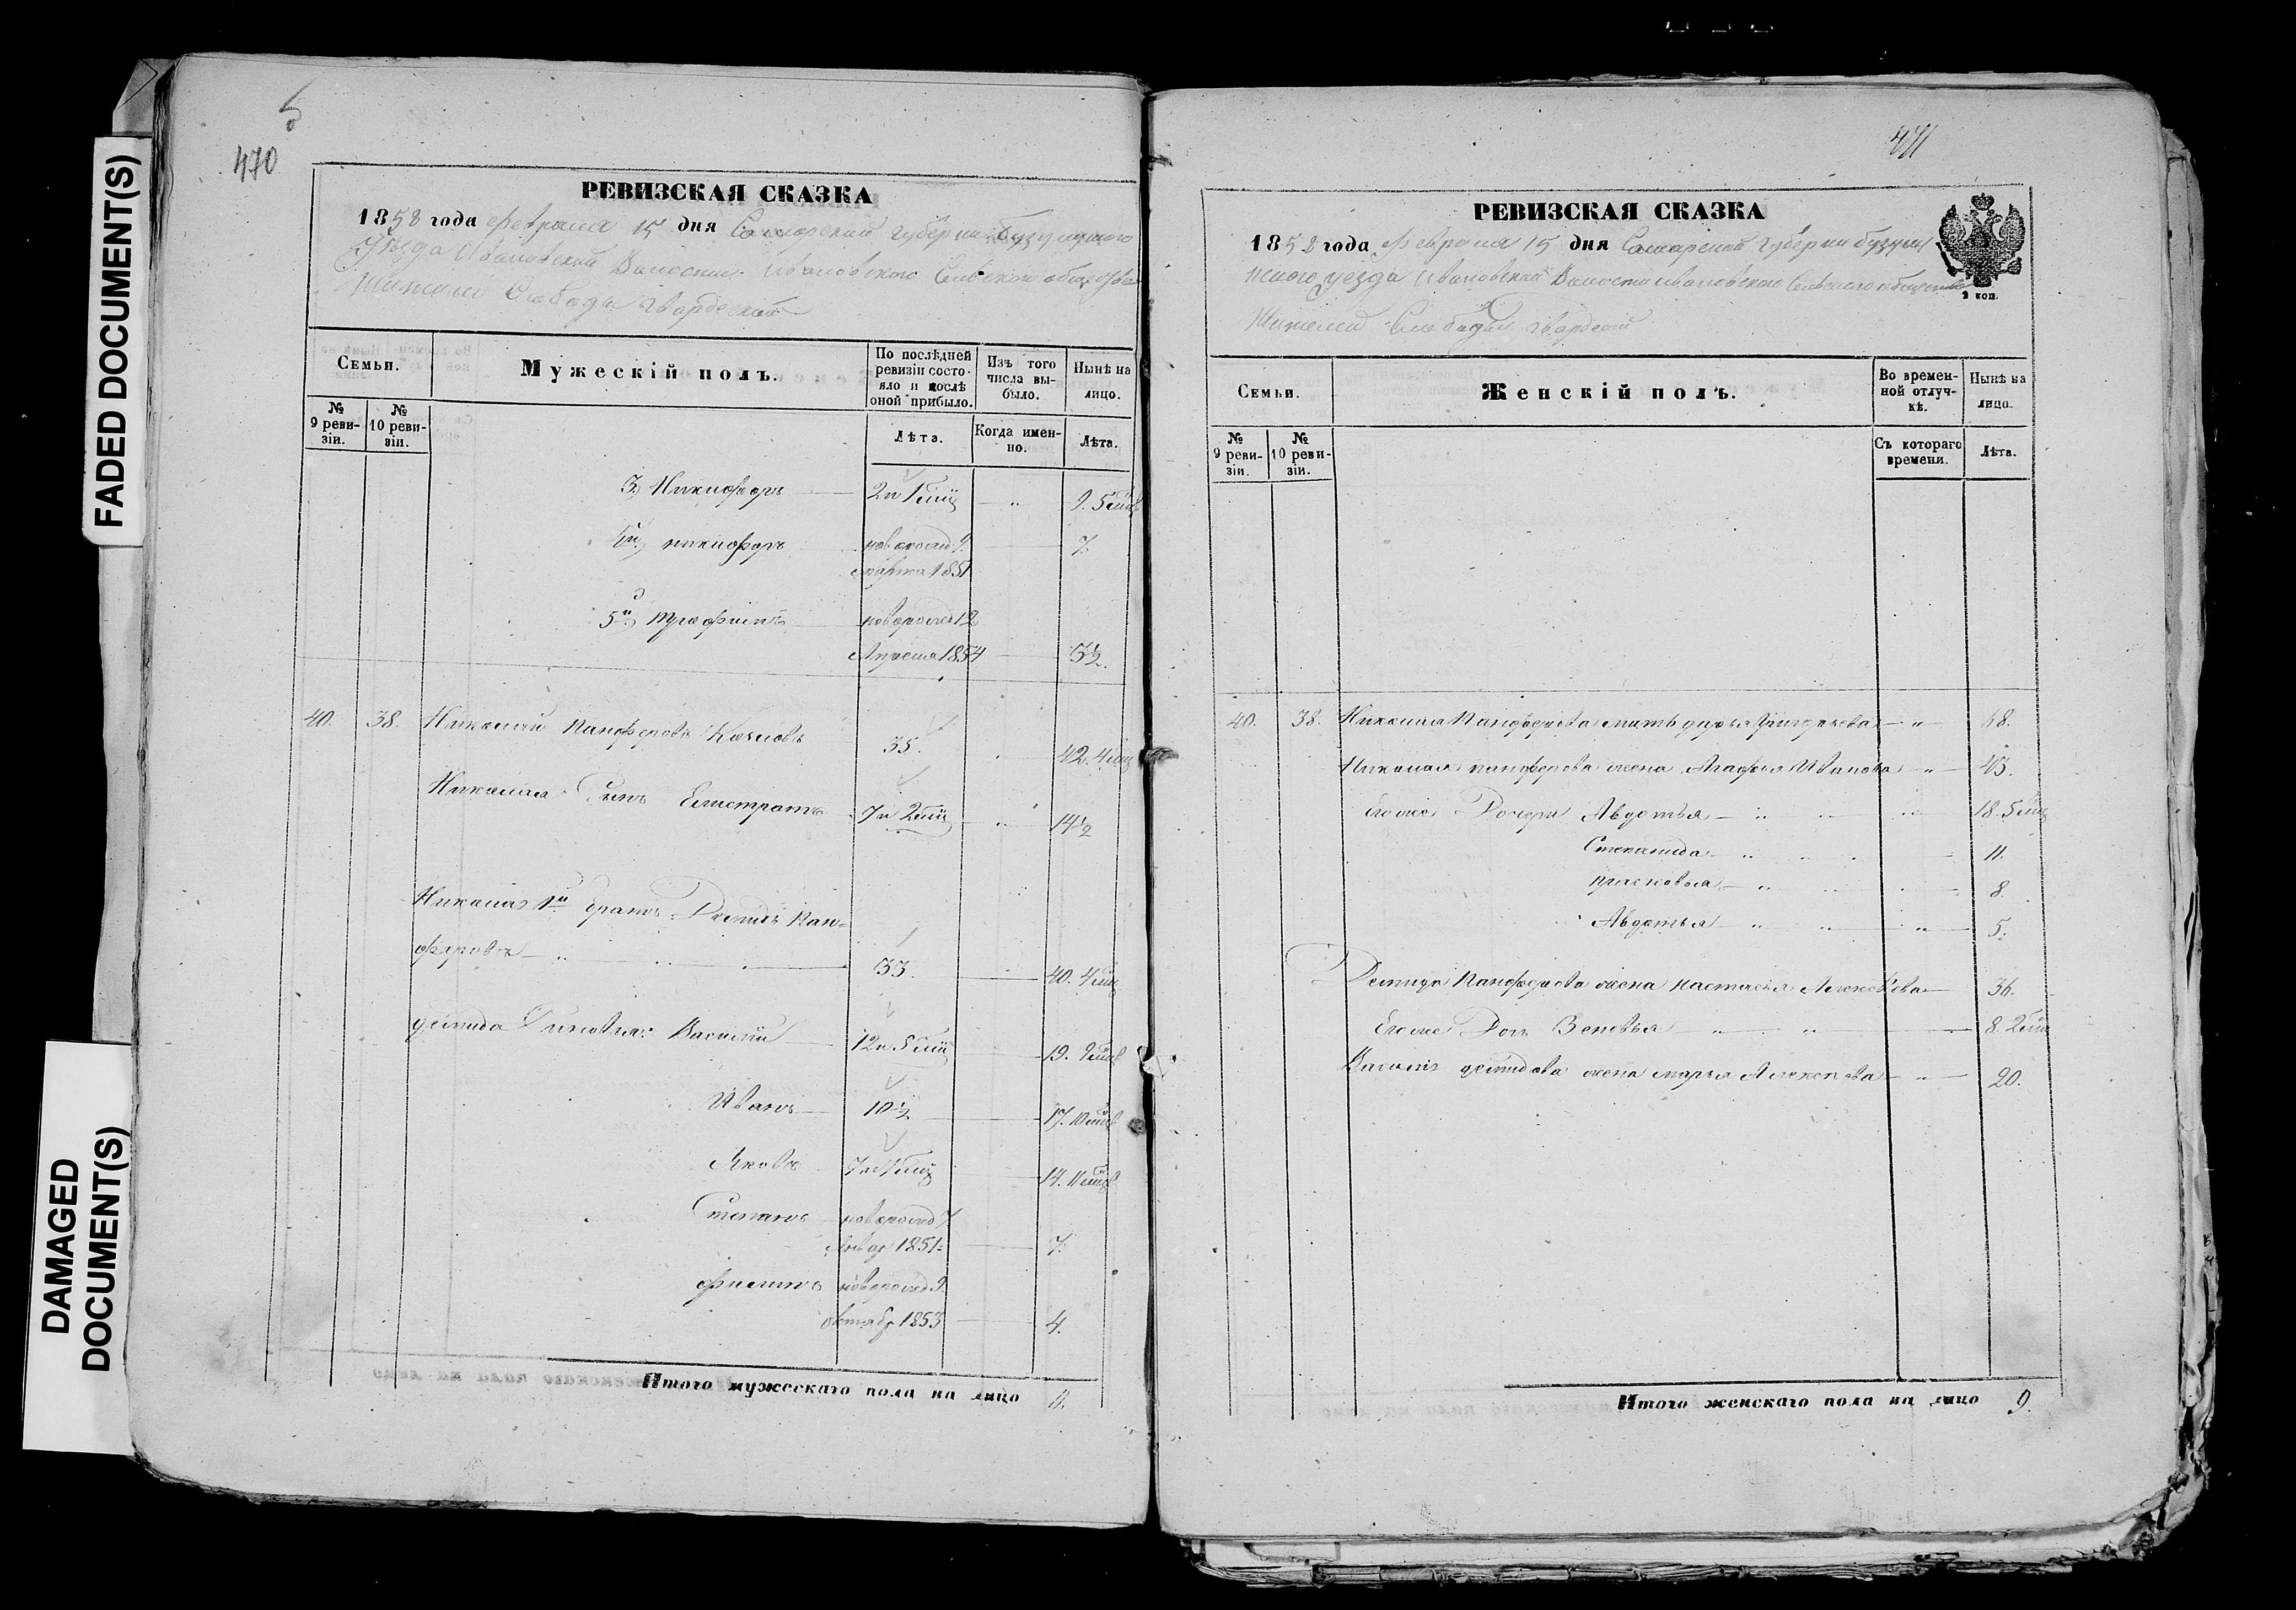 FADED DOCUMENT(S)
DAMAGED
DOCUMENT(S)
470
РЕВИЗСКАЯ СКАЗКА
1858 года Февраля 15 дня Самарской губернии Бузулукского
уезда Ивановской Волости Ивановского Сельского общества
Жителей Слободы Гвардейской
Семьи.
Мужескій полъ.
По послѣдней
ревизіи состо-
яло и послѣ
оной прибыло.
Изъ того
числа вы-
было.
Нынѣ на
лицо.
№
9 реви-
зіи.
№
10 реви-
зіи.
Лѣта.
Когда имен-
но.
Лѣта.
3й Никифоръ 2 и 1 мц " 9. 5 мцв
4й никифоръ новорожд 7.
марта 1851
5й трофимъ новорожд 12
Апреля 1854 3½.
40. 38. Николай Панферовъ 35. 42. 4 мц
Николая Сынъ Елистратъ 7 и 2 мц " 14½
Николая 1й братъ Демидъ Пан=
феровъ 33. 40. 4 мц
демида Сыновья: Василій 12 и 5 мц 19. 9 мцв
Иванъ 10½ 17. 10 мцв
Яковъ 14. 11 мцв
Степанъ новорожд 7.
Январ 1851 7.
филипъ новорожд 9.
октябр 1853 4.
Итого мужескаго пола на лицо
471
РЕВИЗСКАЯ СКАЗКА
1858 года Февраля 15 дня Самарской губернии бузулу
кского уезда Ивановской Волости ивановского Сельского общества
Жителей Слободы гвардей
2 коп.
Семьи.
Женскій полъ.
Во времен-
ной отлуч-
кѣ.
Нынѣ на
лицо.
№
9 реви-
зіи.
№
10 реви-
зіи.
Съ котораго
времени.
Лѣта.
40. 38. Николая Панферова мать дарья " 68.
Николая панферова жена Агафья Иванова " 43.
Егоже Дочери Авдотья " " 18. 5 мц
Степанида " 11.
прасковья " 8.
Авдотья " " " 5.
Демида Панферова жена настасья Алексѣева 36.
Егоже Доч Зеновья " " 8. 2 мц
Василія демидова жена марья Алексеева " 20.
Итого женскаго пола на лицо 9.